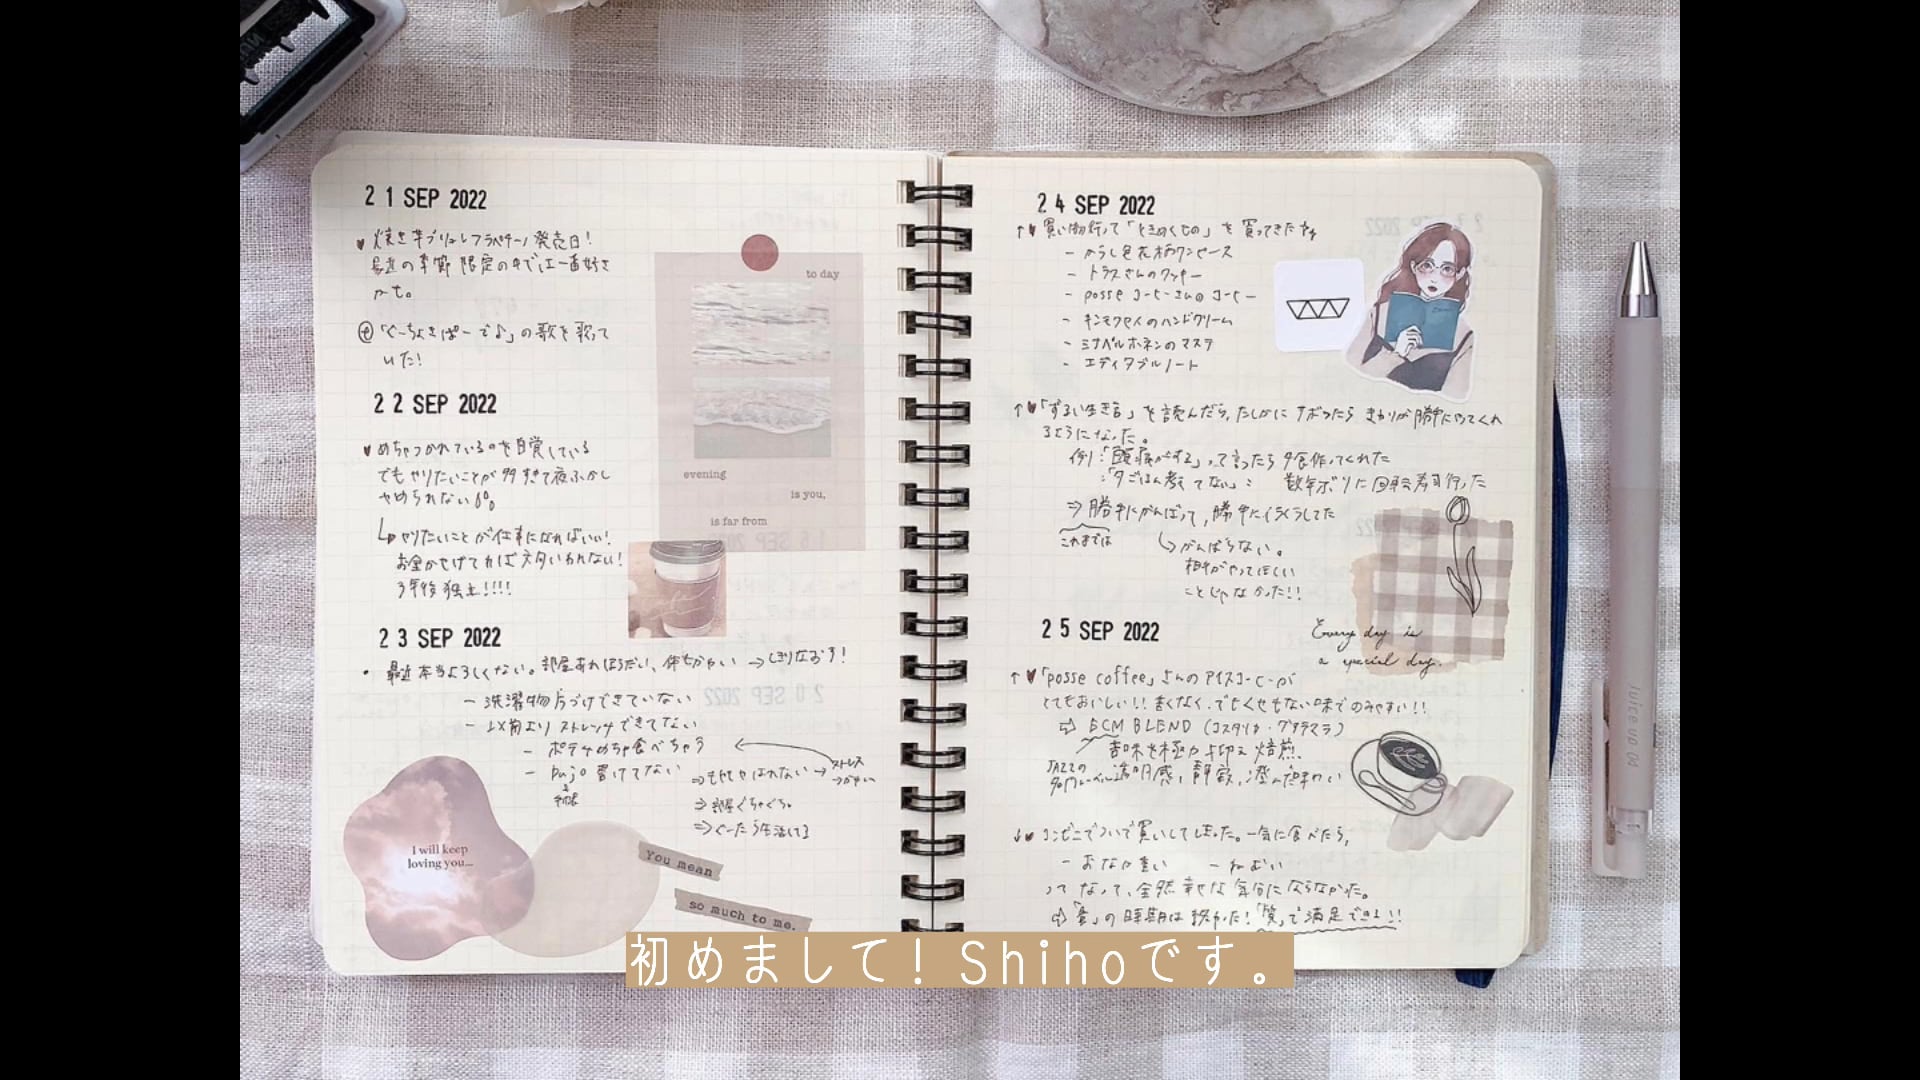 21 SEP 2022
焼き芋ブリュレフラペチーノ発売日!
最近の季節限定の中では一番好き
かも。
「ぐーちょきぱーで♪」の歌を歌って
いた!
to day
evening
is you,
is far from
22 SEP 2022
めちゃつかれているのを自覚している
でもやりたいことが多すぎて夜ふかし
やめられない
やりたいことが仕事になればいい!
お金かせげてれば文句いわれない!
3年後独立!!!!
23 SEP 2022
最近本当よろしくない。部屋あれほうだい、体もかゆい → しきりなおす!
- 洗濯物片づけできていない
ストレッチできてない
- ポテチめちゃ食べちゃう
- bujo 書けてない
手帳
⇒ 部屋ぐちゃぐちゃ
⇒ ぐーたら生活してる
ストレス
I will keep
loving you...
You mean
so much to me.
24 SEP 2022
買い物行って「ときめくもの」を買ってきた
- からし色花柄ワンピース
- トラスさんのクッキー
- posse コーヒーさんのコーヒー
- キンモクセイのハンドクリーム
- ミナペルホネンのマステ
- エディタブルノート
「ずるい生き方」を読んだら、たしかにサボったらまわりが勝手にやってくれ
るようになった。
例:「頭痛がする」って言ったら夕食作ってくれた
:「夕ごはん考えてない」: 数年ぶりに回転寿司行った
⇒ 勝手にがんばって、勝手にイライラしてた
これまでは
がんばらない。
相手がやってほしい
ことじゃなかった!!
Every day is
a special day.
25 SEP 2022
「posse coffee」さんのアイスコーヒーが
とてもおいしい!! 苦くなく、でもくせもない味でのみやすい!!
⇒ ECM BLEND (コスタリカ・グアテマラ)
苦味を極力抑え焙煎
JAZZの
名門レーベル 透明感、静寂、澄んだ味わい
コンビニでついで買いしてしまった。一気に食べたら、
- おなか重い - ねむい
ってなって、全然幸せな気分にならなかった。
⇒「量」の時期は終わった!「質」で満足できる!!
Juice up 04
初めまして! Shihoです。